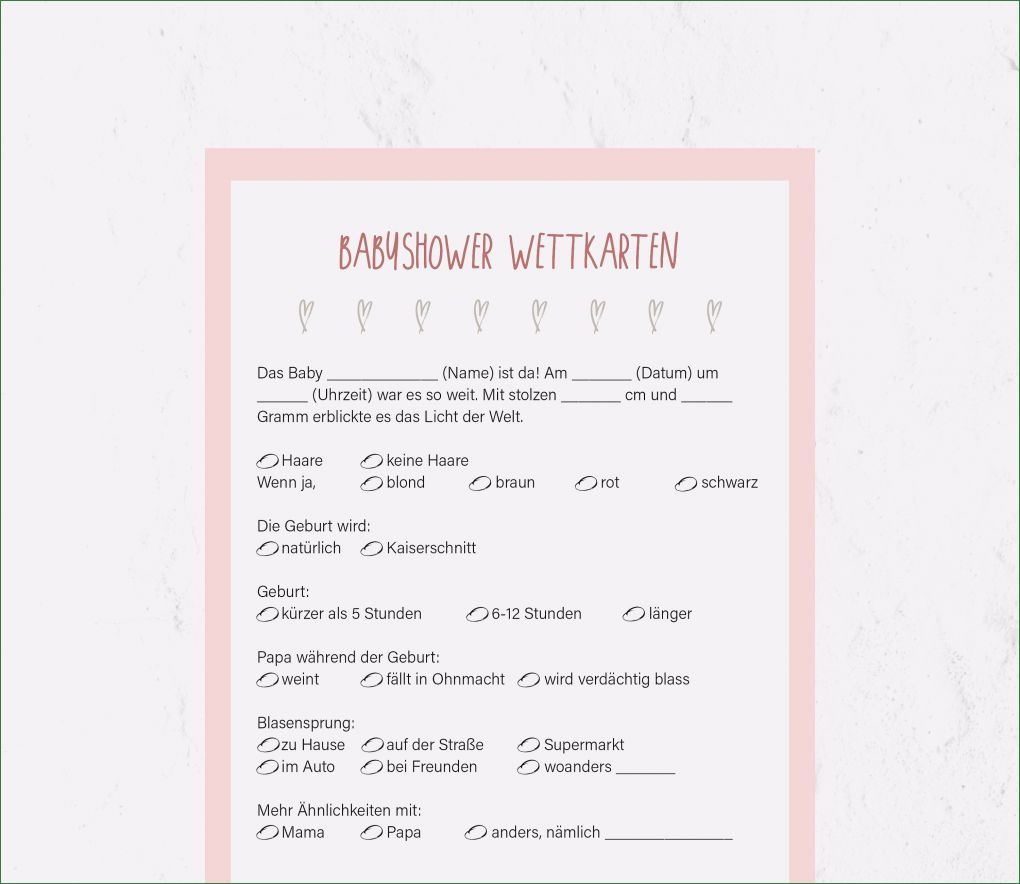 BABYSHOWER WETTKARTEN
Das Baby _____________ (Name) ist da! Am _______ (Datum) um
______ (Uhrzeit) war es so weit. Mit stolzen _______ cm und ______
Gramm erblickte es das Licht der Welt.
Haare keine Haare
Wenn ja, blond braun rot schwarz
Die Geburt wird:
natürlich Kaiserschnitt
Geburt:
kürzer als 5 Stunden 6-12 Stunden länger
Papa während der Geburt:
weint fällt in Ohnmacht wird verdächtig blass
Blasensprung:
zu Hause auf der Straße Supermarkt
im Auto bei Freunden woanders _______
Mehr Ähnlichkeiten mit:
Mama Papa anders, nämlich _______________